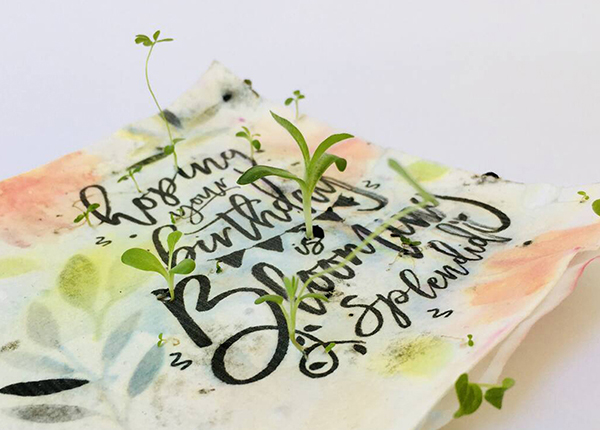 hoping
your
birthday
is
Blooming
splendid